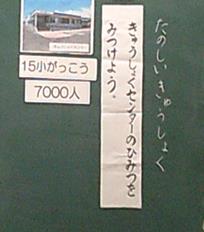 たのしいきゅうしょく
きゅうしょくセンターのひみつを
みつけよう。
15小がっこう
7000人